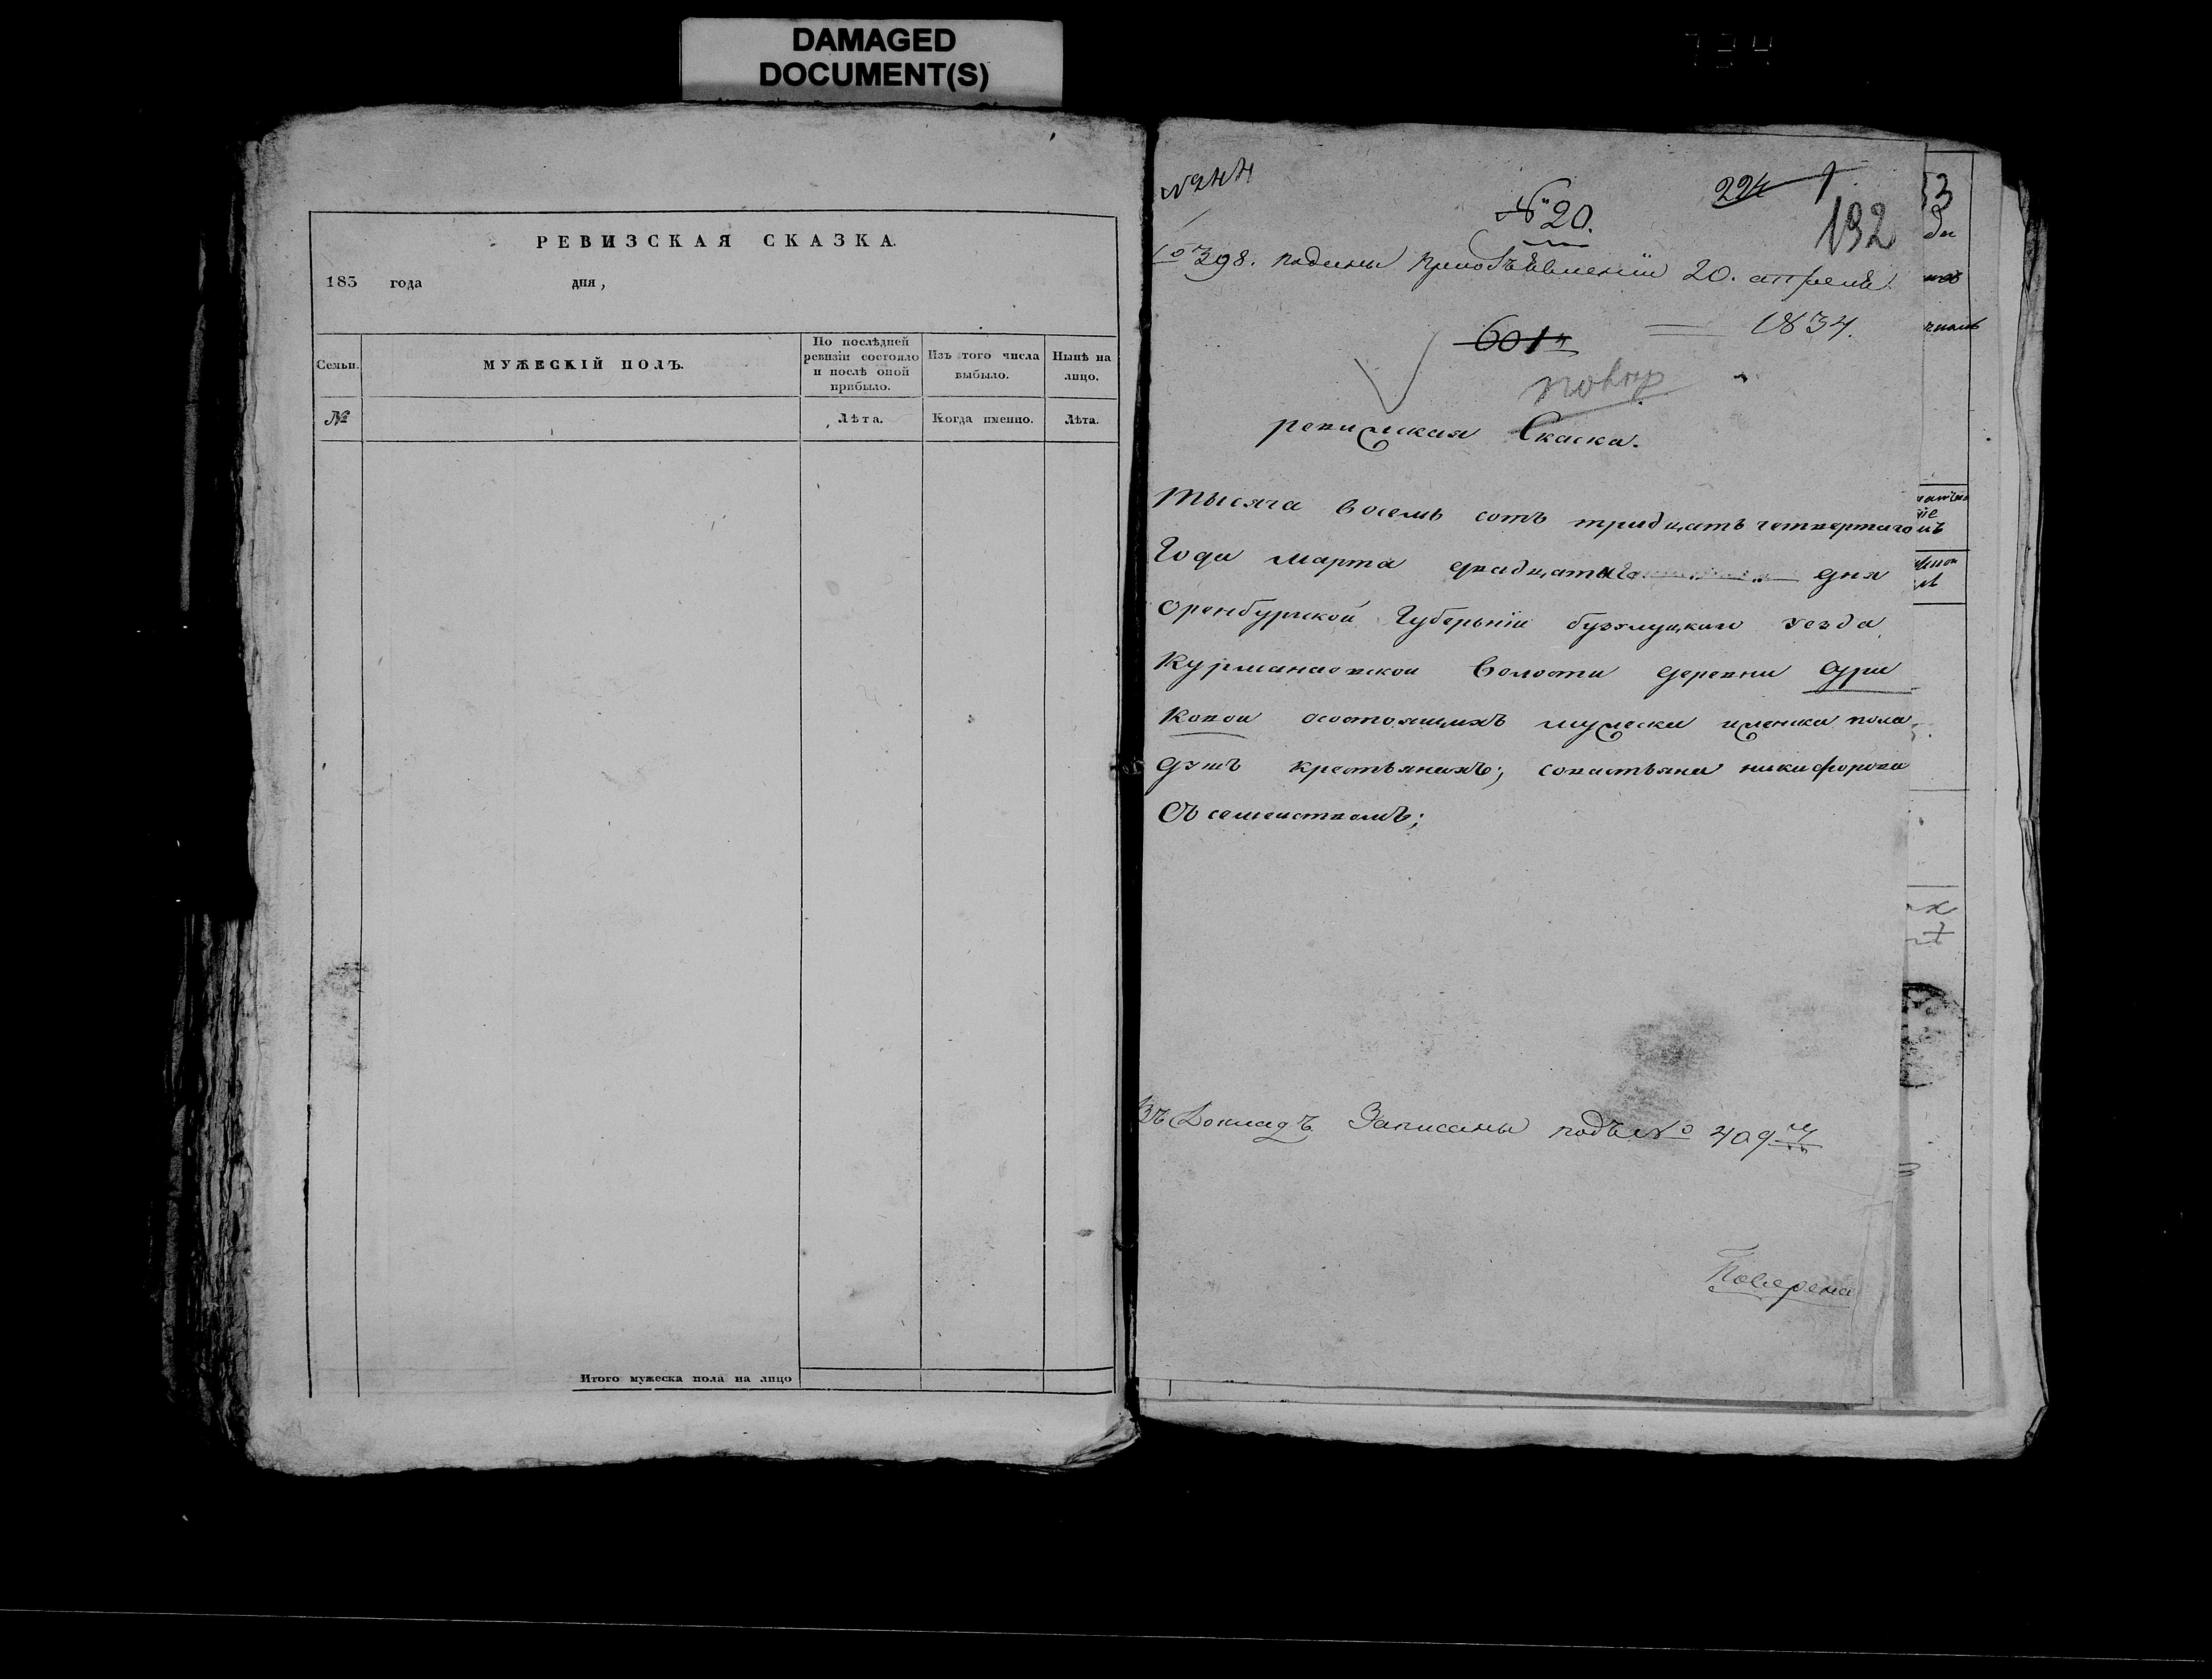 DAMAGED
DOCUMENT(S)
РЕВИЗСКАЯ СКАЗКА.
183 года дня,
Семьи.
МУЖЕСКІЙ ПОЛЪ.
По послѣдней
ревизіи состояло
и послѣ оной
прибыло.
Изъ того числа
выбыло.
Нынѣ на
лицо.
№
Лѣта.
Когда именно.
Лѣта.
Итого мужеска пола на лицо
№ 20.
224
192
398. поданы приобъявленіи 20. апреля
1834.
601
повѣр
ревизская Скаска.
тысяча восемь сотъ тридцать четвертаго
Года марта двадцатаго дня
оренбургской Губерьніи бузулуцкаго уезда
Курманаевской Волости деревни Сури
ковой осостоящихъ мужеска иженска пола
душъ крестьянахъ; савастьяна никифорова
Съ семействомъ;
Въ Докладъ Записаны подъ № 409
Поверена